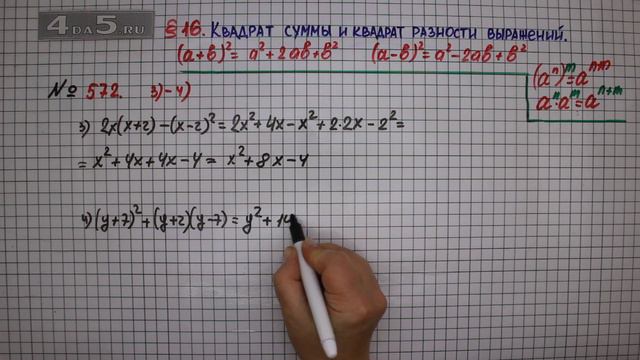 4DA5.RU
§16. Квадрат суммы и квадрат разности выражений.
(a+b)² = a²+2ab+b² (a-b)² = a²-2ab+b²
(aⁿ)ᵐ=aⁿᵐ
aⁿ·aᵐ=aⁿ⁺ᵐ
№ 572. 3)-4)
3) 2x(x+2)-(x-2)²=2x²+4x-x²+2·2x-2²=
= x²+4x+4x-4= x²+8x-4
4) (y+7)²+(y+2)(y-7)= y²+14